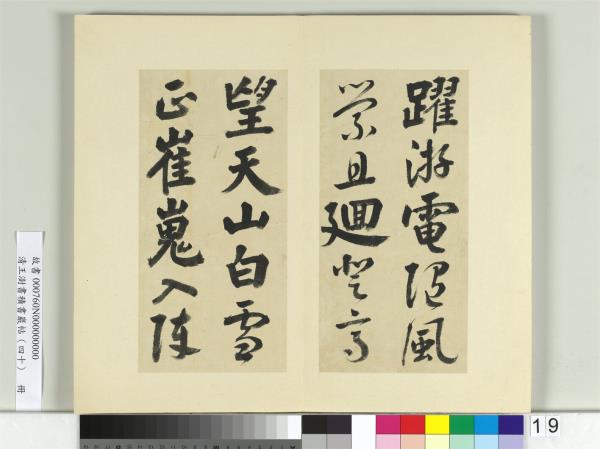 躍游電隨風
縈且廻登高
望天山白雪
正崔嵬入陣
故書 000760N000000000
清王澍書積書巖帖（四十） 冊
19